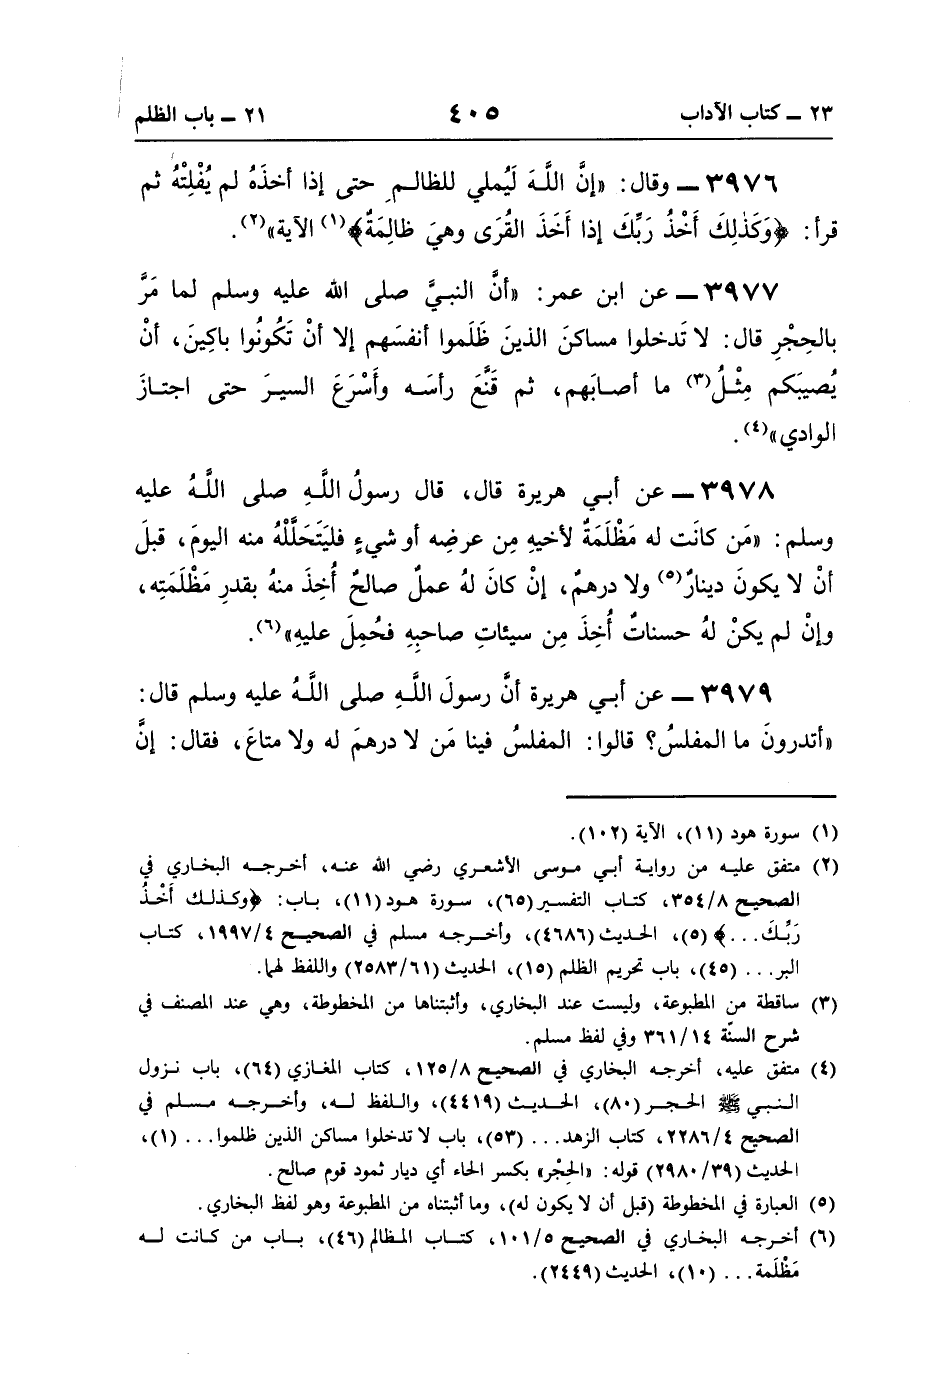 ٢٣ ـ كتاب الآداب ٤٠٥ ٢١ ـ باب الظلم
٣٩٧٦ ـ وقال: «إنَّ اللَّهَ لَيُملي للظالمِ حتى إذا أخذَهُ لم يُفْلِتْهُ ثم
قرأ: ﴿وَكَذٰلِكَ أَخْذُ رَبِّكَ إذا أَخَذَ القُرَى وهيَ ظالِمَةٌ﴾(١) الآية»(٢).
٣٩٧٧ ـ عن ابن عمر: «أنَّ النبيَّ صلى الله عليه وسلم لما مَرَّ
بالحِجْرِ قال: لا تَدخلوا مساكنَ الذينَ ظَلَموا أنفسَهم إلا أنْ تَكُونُوا باكِينَ، أنْ
يُصيبَكم مِثْلُ(٣) ما أصابَهم، ثم قَنَّعَ رأسَه وأَسْرَعَ السيرَ حتى اجتازَ
الوادي»(٤).
٣٩٧٨ ـ عن أبي هريرة قال، قال رسولُ اللَّهِ صلى اللَّهُ عليه
وسلم: «مَن كانَت له مَظْلَمَةٌ لأخيهِ مِن عرضِه أو شيءٍ فليَتَحَلَّلْهُ منه اليومَ، قبلَ
أنْ لا يكونَ دينارٌ(٥) ولا درهمٌ، إنْ كانَ لهُ عملٌ صالحٌ أُخِذَ منهُ بقدرِ مَظْلَمَتِه،
وإنْ لم يكنْ لهُ حسناتٌ أُخِذَ مِن سيئاتِ صاحبِهِ فحُمِلَ عليهِ»(٦).
٣٩٧٩ ـ عن أبي هريرة أنَّ رسولَ اللَّهِ صلى اللَّهُ عليه وسلم قال:
«أتدرونَ ما المفلسُ؟ قالوا: المفلسُ فينا مَن لا درهمَ له ولا متاعَ، فقال: إنَّ
(١) سورة هود (١١)، الآية (١٠٢).
(٢) متفق عليه من رواية أبي موسى الأشعري رضي الله عنه، أخرجه البخاري في
الصحيح ٣٥٤/٨، كتاب التفسير (٦٥)، سورة هود (١١)، باب: ﴿وكذلك أَخْذُ
رَبِّكَ...﴾ (٥)، الحديث (٤٦٨٦)، وأخرجه مسلم في الصحيح ١٩٩٧/٤، كتاب
البر... (٤٥)، باب تحريم الظلم (١٥)، الحديث (٢٥٨٣/٦١) واللفظ لهما.
(٣) ساقطة من المطبوعة، وليست عند البخاري، وأثبتناها من المخطوطة، وهي عند المصنف في
شرح السنّة ٣٦١/١٤ وفي لفظ مسلم.
(٤) متفق عليه، أخرجه البخاري في الصحيح ١٢٥/٨، كتاب المغازي (٦٤)، باب نزول
النبي ﷺ الحجر (٨٠)، الحديث (٤٤١٩)، واللفظ له، وأخرجه مسلم في
الصحيح ٢٢٨٦/٤، كتاب الزهد... (٥٣)، باب لا تدخلوا مساكن الذين ظلموا... (١)،
الحديث (٢٩٨٠/٣٩) قوله: «الحِجْر» بكسر الحاء أي ديار ثمود قوم صالح.
(٥) العبارة في المخطوطة (قبل أن لا يكون له)، وما أثبتناه من المطبوعة وهو لفظ البخاري.
(٦) أخرجه البخاري في الصحيح ١٠١/٥، كتاب المظالم (٤٦)، باب من كانت له
مَظْلَمة... (١٠)، الحديث (٢٤٤٩).